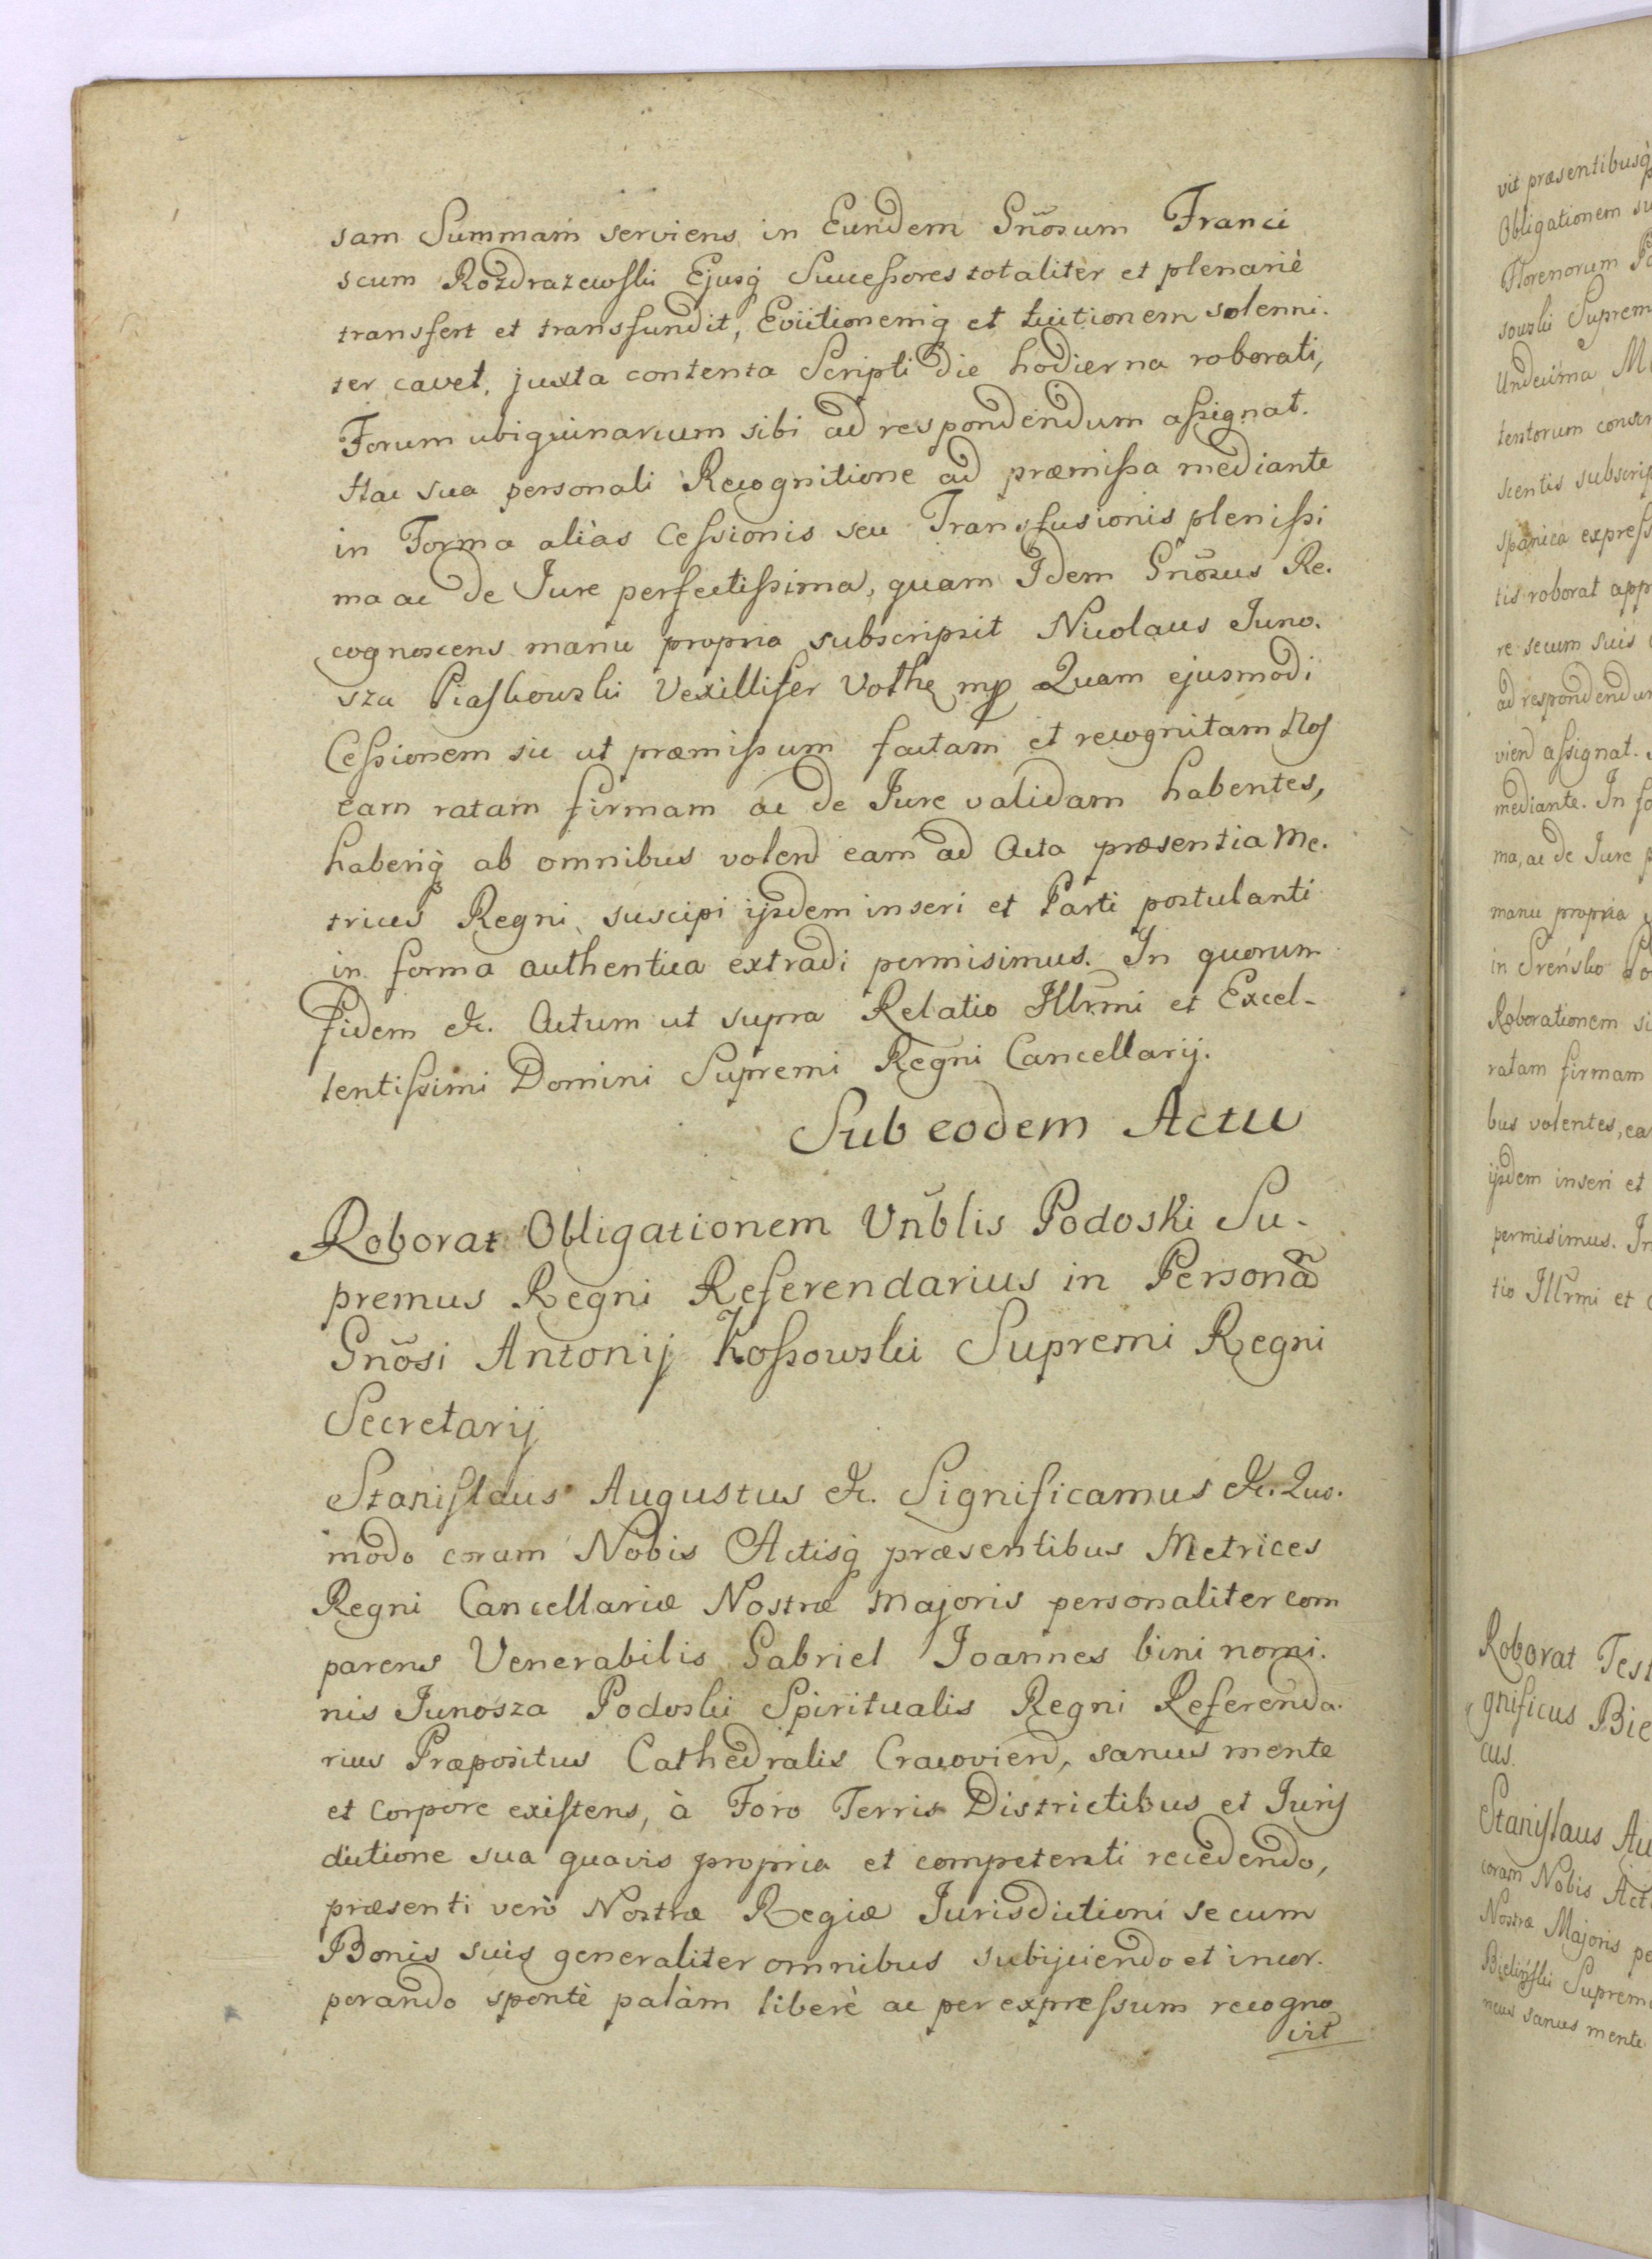 sam Summam serviens in Eundem Gñosum Franci
scum Rozdrazewski Ejusq̀ Successores totaliter et plenariè
transfert et transfundit, Evictionemq̀ et tuitionem solenni.
ter cavet, juxta contenta Scripti die hodierna roborati,
Forum ubiquinarium sibi ad respondendum assignat.
Hac sua personali Recognitione ad præmissa mediante
in Forma aliàs Cessionis seu Transfusionis plenissi
ma ac de Jure perfectissima, quam Idem Gñosus Re.
cognoscens manu propria subscripsit Nicolaus Juno.
sza Piaskowski Vexillifer Volhę mp Quam ejusmodi
Cessionem sic ut præmissum factam et recognitam Nos
eam ratam firmam ac de Jure validam habentes,
haberiq̀ ab omnibus volend eam ad Acta præsentia Me.
trices Regni suscipi ijsdem inseri et Parti postulanti
in forma authentica extradi permisimus. In quorum
fidem &c. Actum ut supra Relatio Illr̃mi et Excel-
lentissimi Domini Supremi Regni Cancellarij.
Sub eodem Actu
Roborat Obligationem Vñblis Podoski Su-
premus Regni Referendarius in Personã
Gñosi Antonij Kossowski Supremi Regni
Secretarij
Stanislaus Augustus &c. Significamus &c. Quo.
modo coram Nobis Actisq̀ præsentibus Metrices
Regni Cancellariæ Nostræ Majoris personaliter com
parens Venerabilis Gabriel Joannes bini nomi.
nis Junosza Podoski Spiritualis Regni Referenda.
rius Præpositus Cathedralis Cracoviend, sanus mente
et Corpore existens, à Foro Terris Districtibus et Juris
dictione sua quavis propria et competenti recedendo,
præsenti verò Nostræ Regiæ Jurisdictioni se cum
Bonis suis generaliter omnibus subijciendo et incor.
porando spontè palàm liberè ac per expressum recogno
vit
vit præsentibusq̀
Obligationem su
Florenorum
sowski Suprem
Undecima M
tentorum
scentis subscrip
express
tis roborat app
re secum suis
ad respondendum
viend assignat.
mediante. In fo
ma, ac de Jure p
manu propria
in Sreńsko Po
Roborationem si
ratam firmam
bus volentes, ea
ijsdem inseri et
permisimus. In
tio Illr̃mi et
Roborat Test
gnificus Bie
cus.
Stanislaus Au
coram Nobis Act
Nostræ Majoris pe
Bieliński Suprem
neus sanus mente